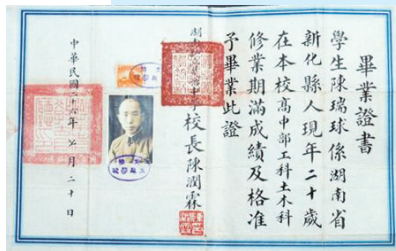 畢業證書
學生陳瑞球係湖南省
新化縣人現年二十歲
在本校高中部工科土木科
修業期滿成績及格准
予畢業此證
校長陳潤霖
中華民國三十六年 月二十日